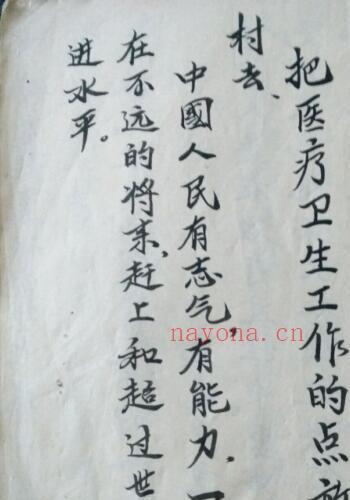 把医疗卫生工作的点
村去、
中國人民有志气,有能力,一
在不远的将来,赶上和超过世
进水平。
nayona.cn